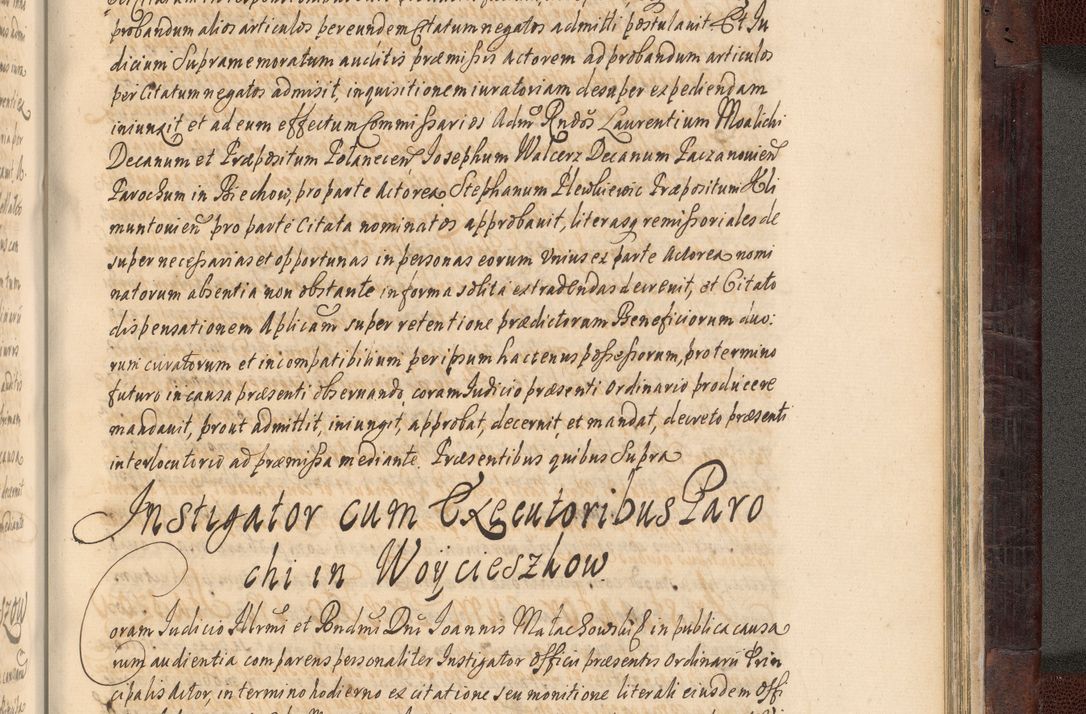 probandum alios articulos per eundem Citatum negatos admitti postulauit. Et Ju
dicium Supramemoratum auditis præmissis Actorem ad probandum articulos
per Citatum negatos admisit, inquisitionem iuratoriam desuper expediendam
iniunxit et ad eum effectum Commissarios Admẽ Rndos Laurentium Moalichi
Decanum et Præpositum Polanecen̄, Josephum Walcerz Decanum Paczanouien̄
Parochum in Biechow, pro parte Actorea Stephanum Plewkiewic Præpositum Kli
muntouien̄ pro parte Citata nominatos approbauit, literasq remissoriales de
super necessarias et opportunas in personas eorum vnius ex parte Actorea nomi
natorum absentia non obstante in forma solita extradendas decreuit, et Citato
dispensationem Aplicam super retentione prædictorum Beneficiorum duo:
rum curatorum et incompatibilium per ipsum hactenus possessorum, pro termino
futuro in causa præsenti obseruando, coram Judicio præsenti Ordinario producere
mandauit, prout admittit, iniungit, approbat, decernit, et mandat, decreto præsenti
interlocutorio ad præmissa mediante. Præsentibus quibus Supra
Instigator cum Executoribus Paro
chi in Woycieszkow
Coram Judicio Illrmi et Rndmi Dni Joannis Małachowski E in publica causa
rum audientia comparens personaliter Instigator Officii præsentis Ordinarii Prin
cipalis Actor, in termino hodierno ex citatione seu monitione literali eiusdem Offi